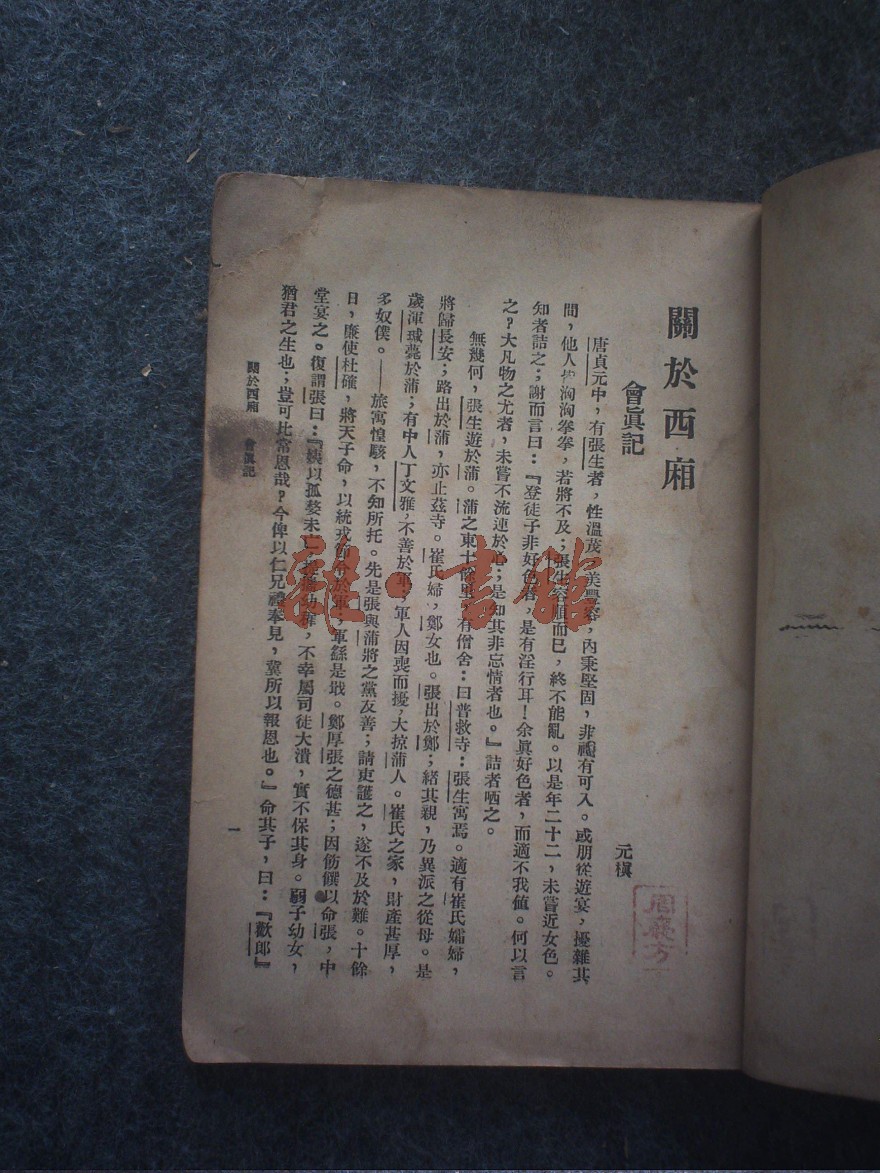 關於西廂
會眞記
元稹
唐貞元中，有張生者，性溫茂，美豐容，內秉堅固，非禮有可入。或朋從遊宴，擾雜其
間，他人皆洶洶拳拳，若將不及；張生容順而已，終不能亂。以是年二十二，未嘗近女色。
知者詰之；謝而言曰：『登徒子非好色者，是有淫行耳！余眞好色者，而適不我値。何以言
之？大凡物之尤者，未嘗不流連於心；是知其非忘情者也。』詰者哂之。
無幾何，張生遊於蒲。蒲之東十餘里，有僧舍：曰普救寺：張生寓焉。適有崔氏孀婦，
將歸長安；路出於蒲，亦止茲寺。崔氏婦，鄭女也。張出於鄭；緒其親，乃異派之從母。是
歲渾瑊薨於蒲；有中人丁文雅，不善於軍，軍人因喪而擾，大掠蒲人。崔氏之家，財產甚厚，
多奴僕。——旅寓惶駭，不知所托。先是張與蒲將之黨友善；請吏護之，遂不及於難。十餘
日，廉使杜確，將天子命，以統戎節令於軍；軍繇是戢。鄭厚張之德甚；因飭饌以命張，中
堂宴之。復謂張曰：『姨以孤嫠未亡，提攜幼稚，不幸屬司徒大潰，實不保其身。弱子幼女，
猶君之生也；豈可比常恩哉？今俾以仁兄禮奉見，冀所以報恩也。』命其子，曰：『歡郎』
關於西廂 會眞記
一
龍·書館